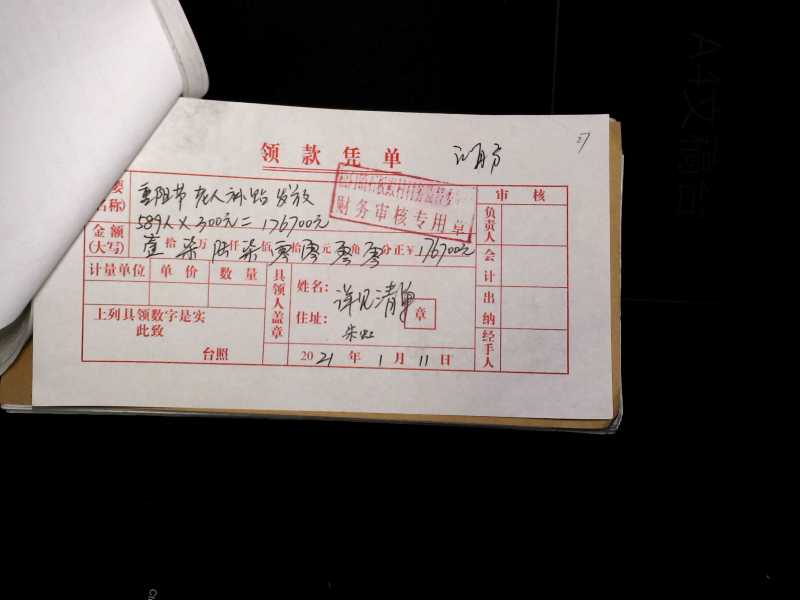 领款凭单
27
要
名称)
重阳节老人补贴发放
589人×300元=176700元
财务审核专用章
金额
(大写)
壹拾柒万陆仟柒佰零拾零元零角零分正¥176700元
计量单位 单价 数量
上列具领数字是实
此致
台照
具领人盖章
姓名:
详见清单
住址:
章
朱红
2021年1月11日
审核
负责人
会计
出纳
经手人